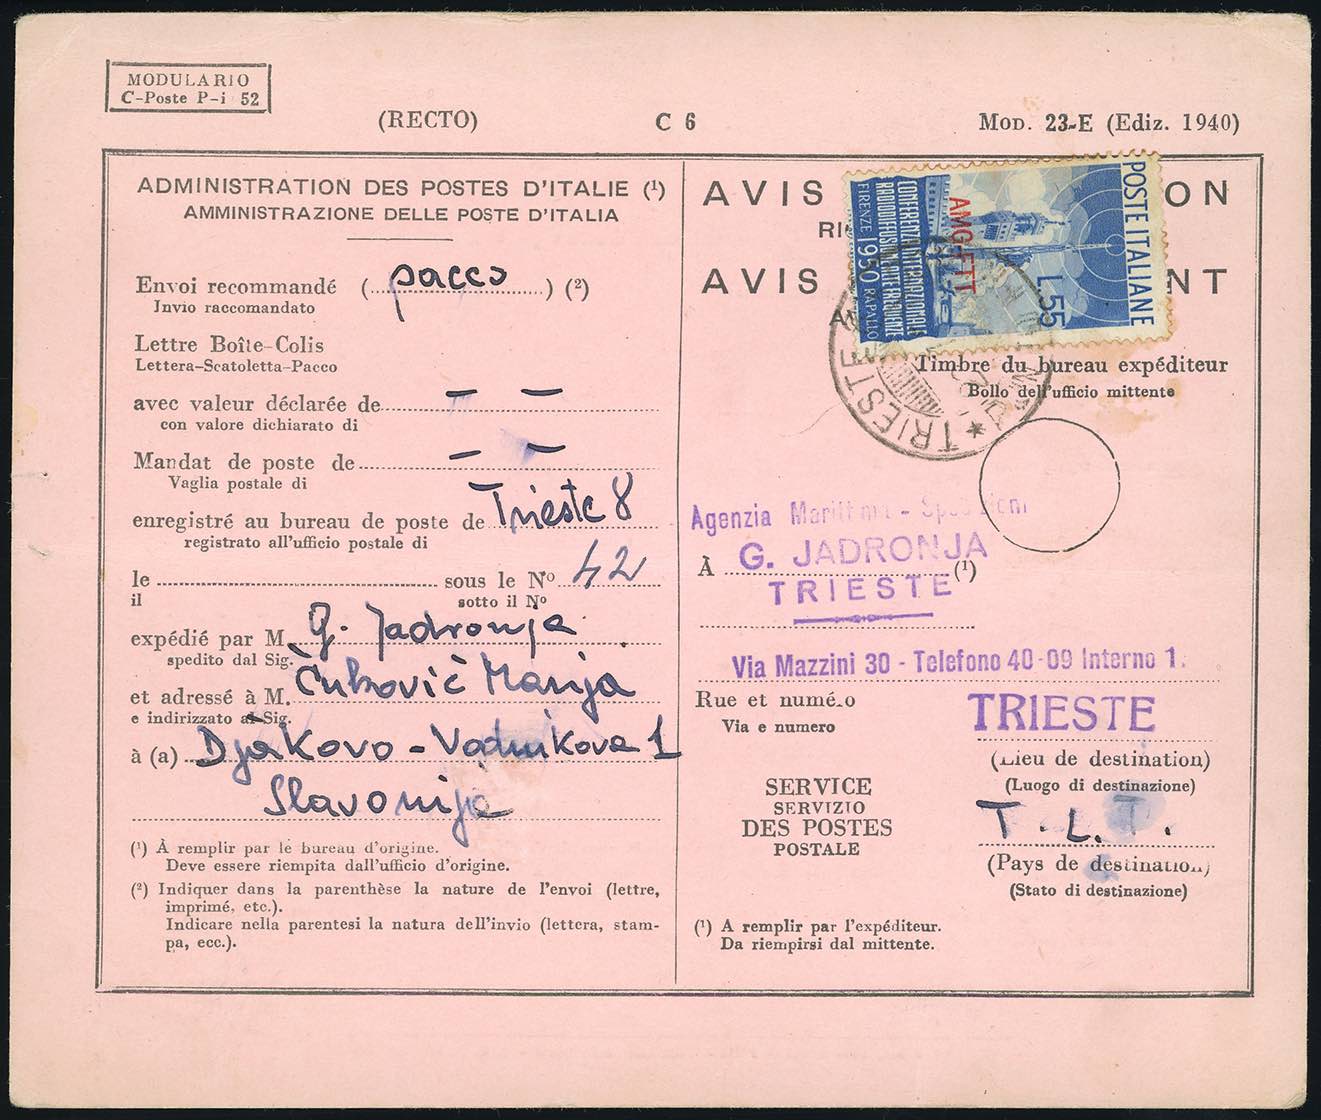 MODULARIO
C-Poste P-i 52
(RECTO)
C 6
MOD. 23-E (Ediz. 1940)
ADMINISTRATION DES POSTES D'ITALIE (¹)
AMMINISTRAZIONE DELLE POSTE D'ITALIA
Envoi recommandé (pacco) (²)
Invio raccomandato
Lettre Boîte-Colis
Lettera-Scatoletta-Pacco
avec valeur déclarée de — —
con valore dichiarato di
Mandat de poste de — —
Vaglia postale di
enregistré au bureau de poste de Trieste 8
registrato all'ufficio postale di
le sous le Nº 42
il sotto il Nº
expédié par M. G. Jadronja
spedito dal Sig.
et adressé à M. Čuković Marija
e indirizzato al Sig.
à (a) Djakovo - Vodnikova 1
Slavonija
(¹) À remplir par le bureau d'origine.
Deve essere riempita dall'ufficio d'origine.
(²) Indiquer dans la parenthèse la nature de l'envoi (lettre,
imprimé, etc.).
Indicare nella parentesi la natura dell'invio (lettera, stam-
pa, ecc.).
AVIS ON
RI
AVIS NT
POSTE ITALIANE
L.55
AMG-FTT
CONFERENZA INTERNAZIONALE
RADIODIFFUSIONE ALTE FREQUENZE
FIRENZE 1950 RAPALLO
TRIESTE
Timbre du bureau expéditeur
Bollo dell'ufficio mittente
Agenzia Marittima - Spedizioni
À G. JADRONJA (¹)
TRIESTE
Via Mazzini 30 - Telefono 40-09 Interno 1.
Rue et numéro
Via e numero
TRIESTE
(Lieu de destination)
(Luogo di destinazione)
SERVICE
SERVIZIO
DES POSTES
POSTALE
T.L.T.
(Pays de destination)
(Stato di destinazione)
(¹) A remplir par l'expéditeur.
Da riempirsi dal mittente.